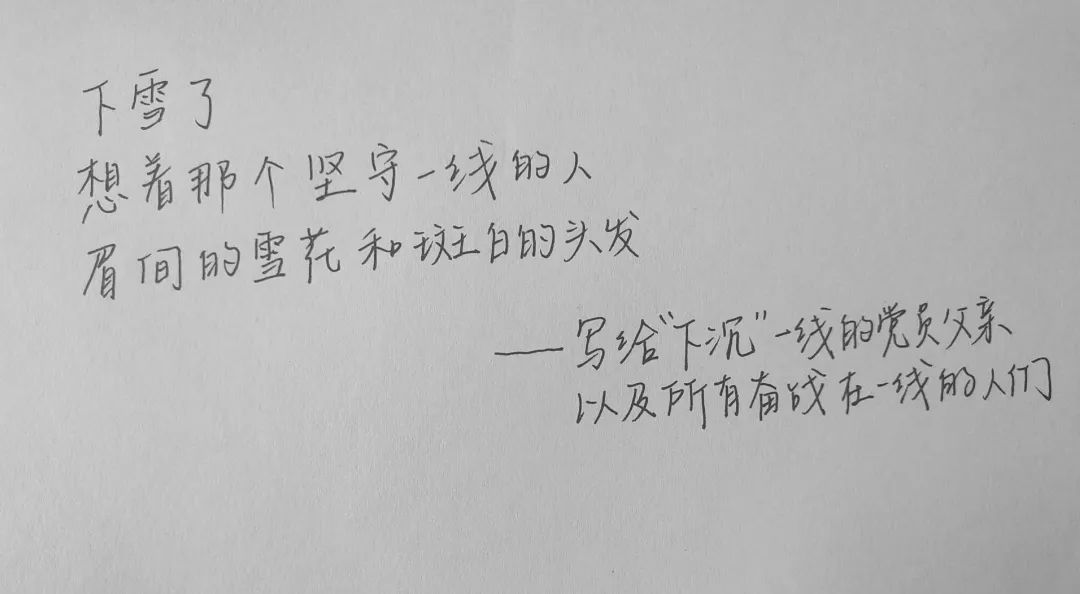 下雪了
想着那个坚守一线的人
眉间的雪花和斑白的头发
——写给“下沉”一线的党员父亲
以及所有奋战在一线的人们